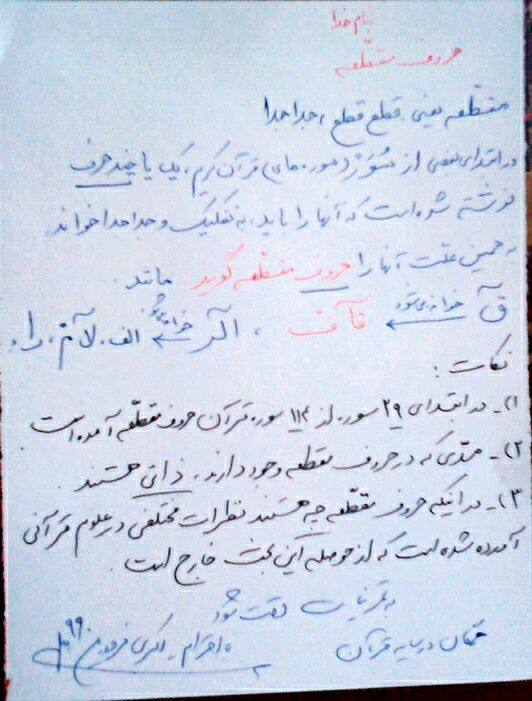 بنام خدا
حروف مقطّعه
مقطّعه یعنی: قطع قطع، جدا جدا
در ابتدای بعضی از سُوَرْ (سوره های) قرآن کریم، یک یا چند حرف
نوشته شده است که آنها را باید، به تفکیک و جدا جدا خواند
به همین علت آنها را حروف مقطّعه گویند. مانند
قآ خوانده می شود قآف ، الٓر خوانده می شود الف. لآم. را.
نکات:
۱)- در ابتدای ۲۹ سوره از ۱۱۴ سوره قرآن حروف مقطّعه آمده است.
۲)- مدّی که در حروف مقطعه وجود دارند، ذاتی هستند.
۳)- در اینکه حروف مقطّعه چه هستند نظرات مختلفی در علوم قرآنی
آورده شده است که از حوصله این بحث خارج است.
به تمرینات دقت شود
در سایه قرآن
با احترام - اکبری ۹۹